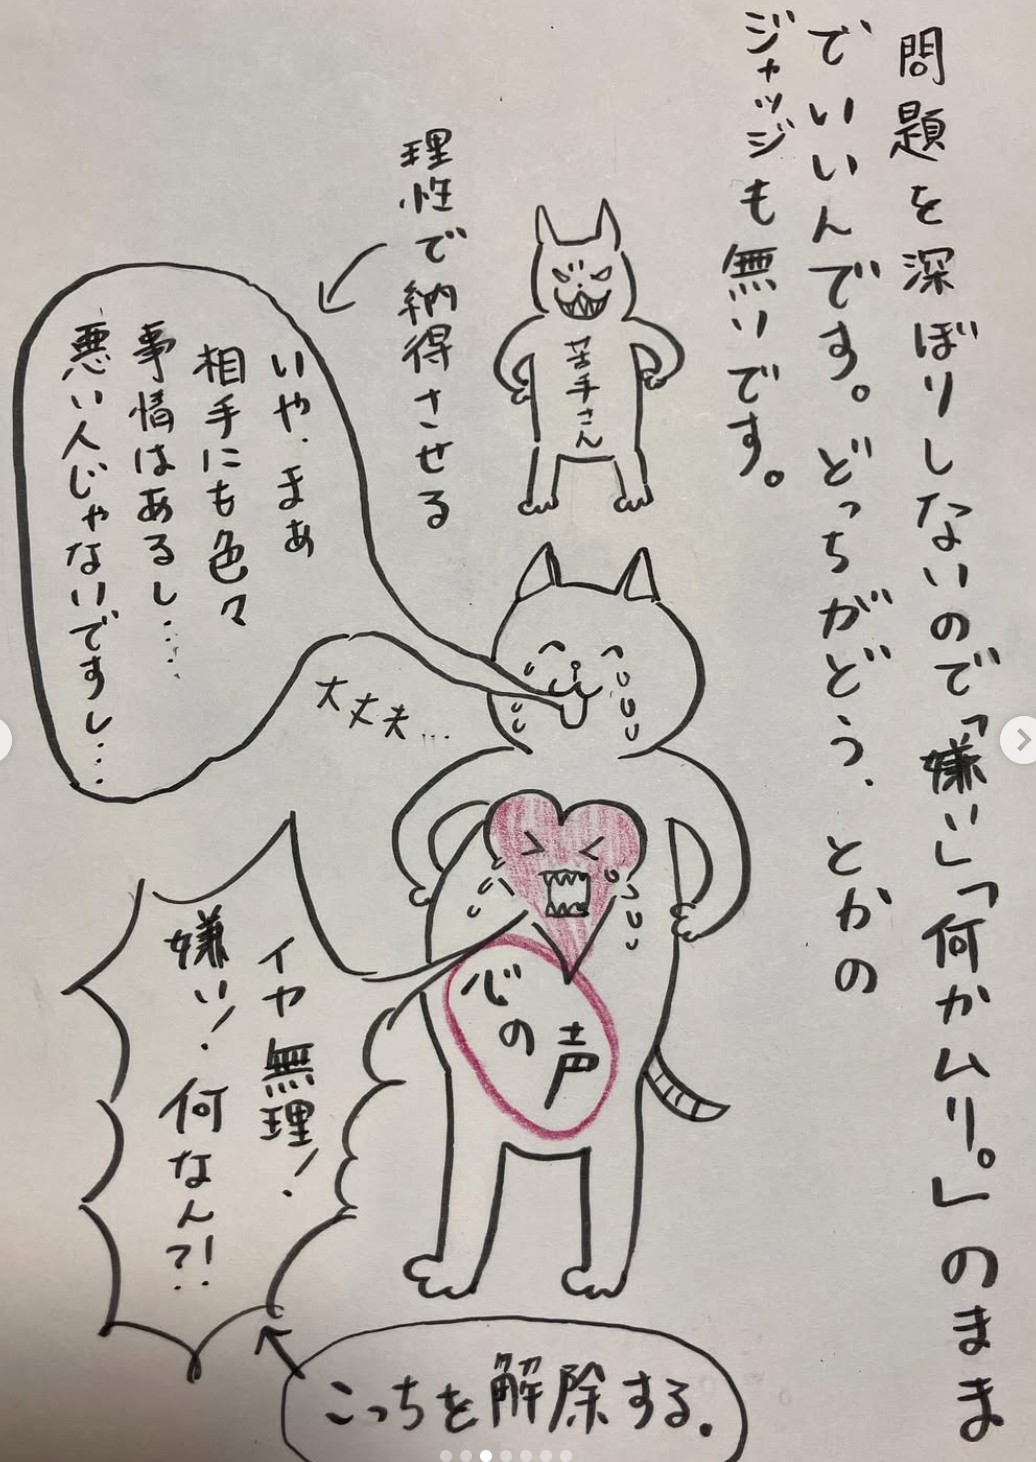 問題を深ぼりしないので「嫌い」「何かムリ。」のまま
でいいんです。どっちがどう、とかの
ジャッジも無いです。
苦手さん
理性で納得させる
いや、まあ
相手にも色々
事情はあるし…
悪い人じゃないですし…
大丈夫…
心の
声
イヤ無理!
嫌い!何なん?!
こっちを解除する。